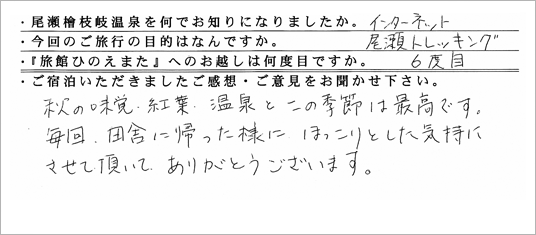 ・尾瀬檜枝岐温泉を何でお知りになりましたか。インターネット
・今回のご旅行の目的はなんですか。 尾瀬トレッキング
・『旅館ひのえまた』へのお越しは何度目ですか。 6度目
・ご宿泊いただきましたご感想・ご意見をお聞かせ下さい。
秋の味覚・紅葉・温泉とこの季節は最高です。
毎回、田舎に帰った様に ほっこりとした気持に
させて頂いて ありがとうございます。